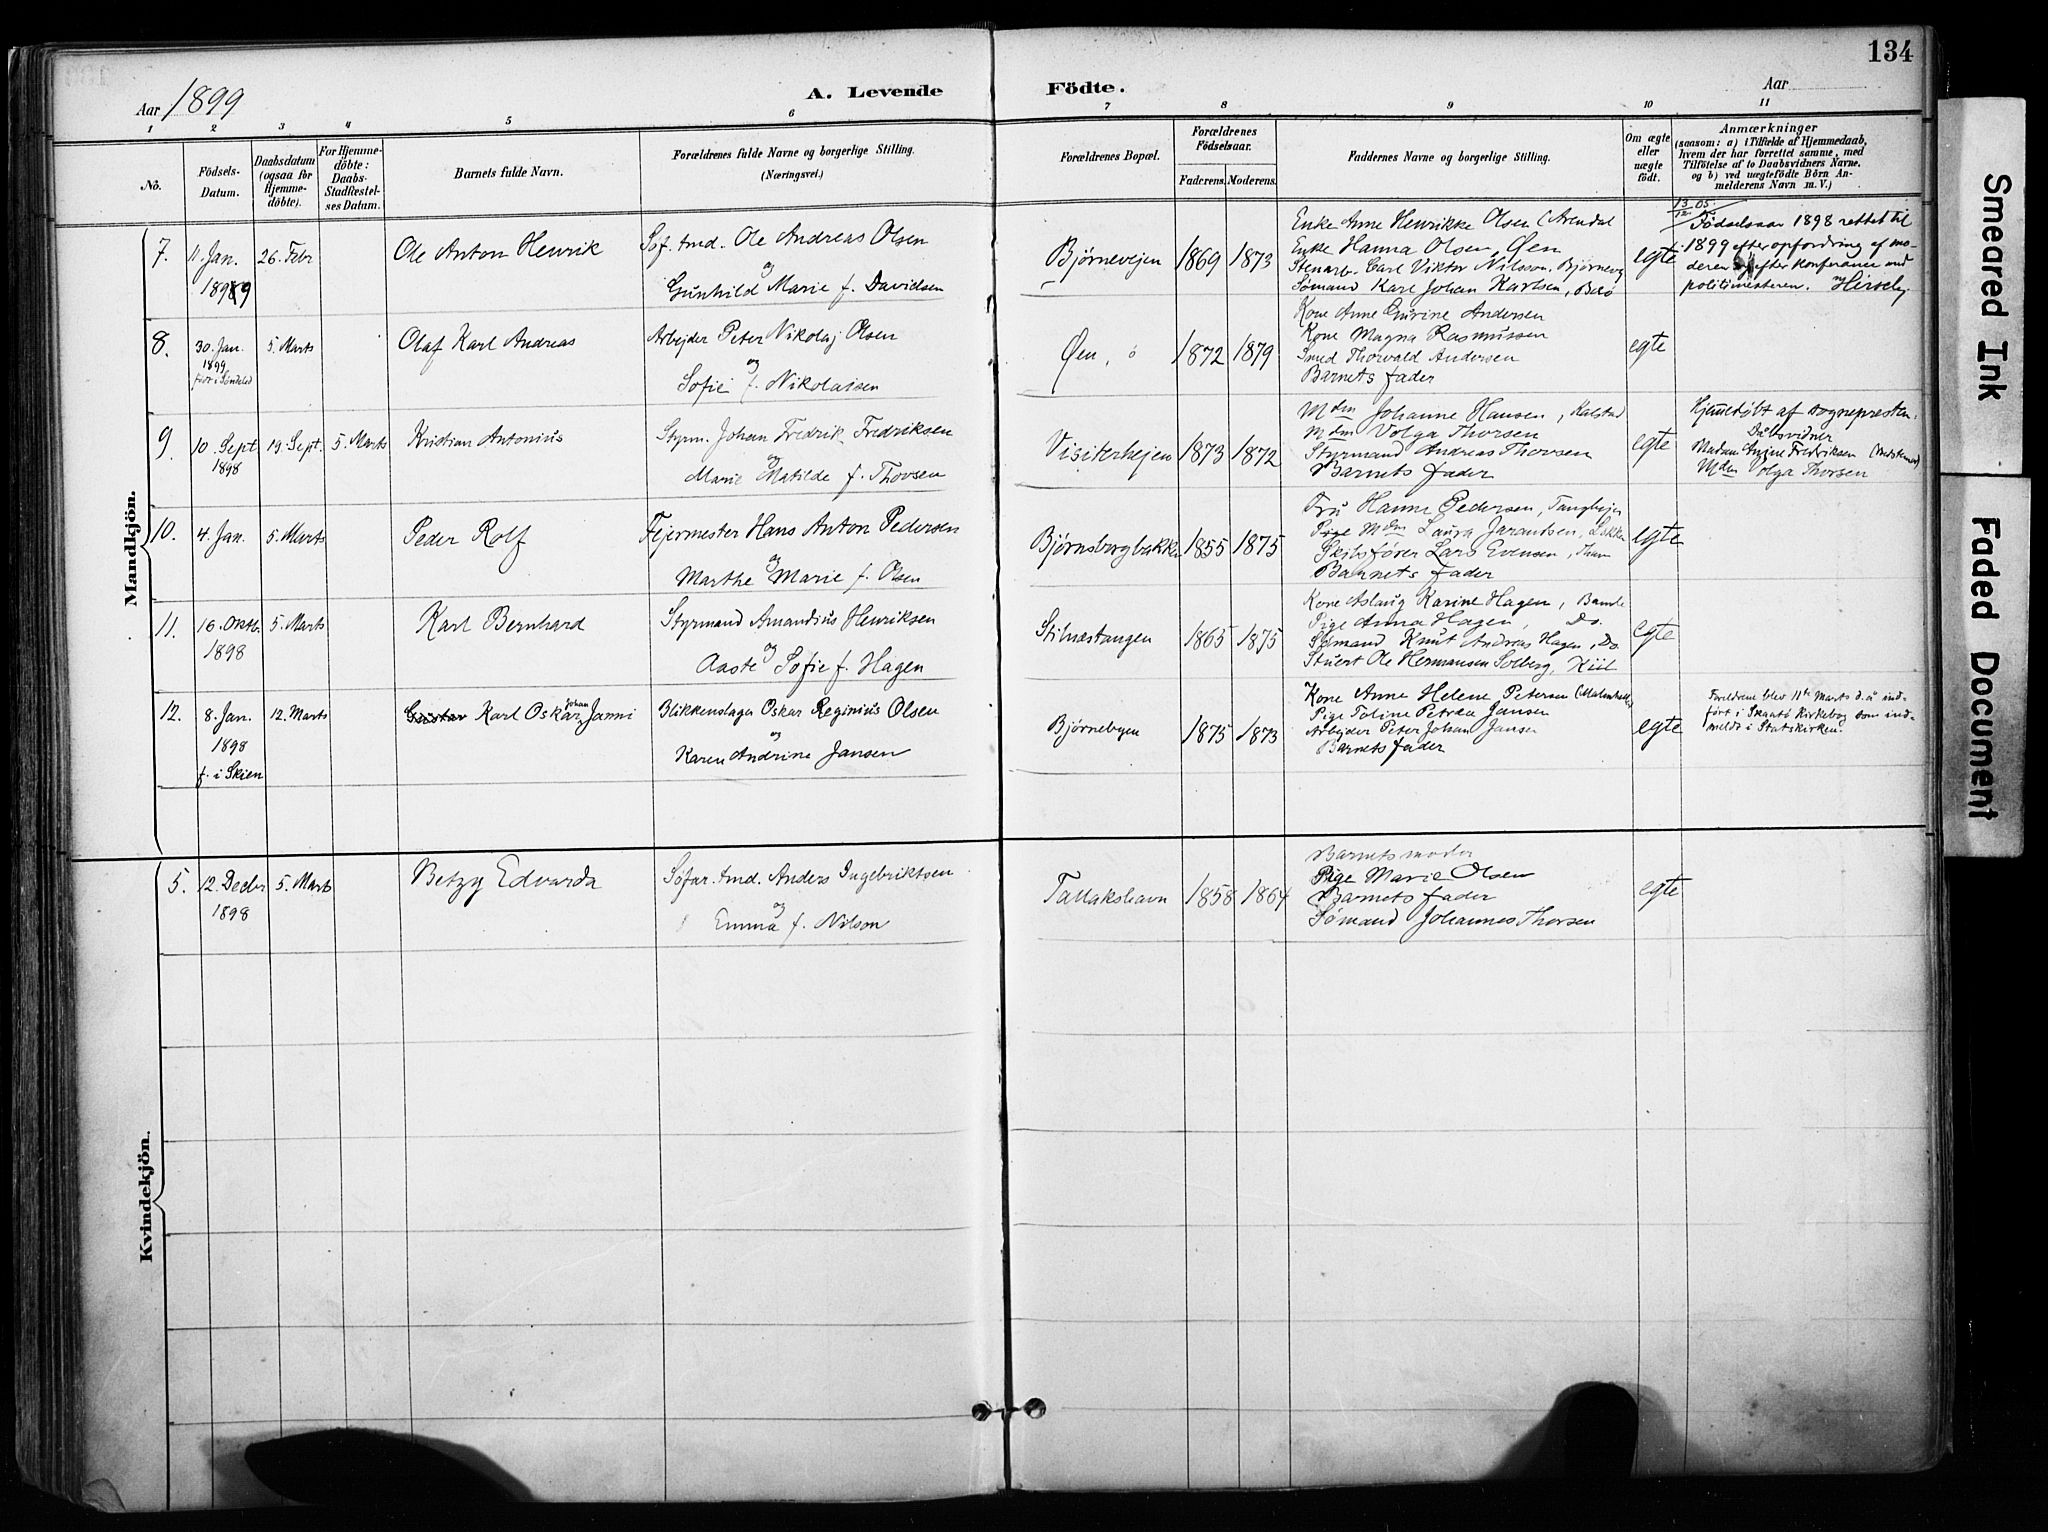 134
Aar 1899
A. Levende Födte.
Aar
1 2 3 4 5 6 7 8 9 10 11
No.
Födsels-
Datum.
Daabsdatum
(ogsaa for
Hjemme-
döbte).
For Hjemme-
döbte:
Daabs-
Stadfæstel-
ses Datum.
Barnets fulde Navn.
Forældrenes fulde Navne og borgerlige Stilling.
(Næringsvei.)
Forældrenes Bopæl.
Forældrenes
Födselsaar.
Faderens. Moderens.
Faddernes Navne og borgerlige Stilling.
Om ægte
eller
uægte
födt.
Anmærkninger
(saasom: a) i Tilfælde af Hjemmedaab,
hvem der har forrettet samme, med
Tilföielse af to Daabsvidners Navne.
og b) ved uægtefödte Börn An-
melderens Navn m. V.)
Mandkjön.
7.
11 Jan.
1899
26. Febr
Ole Anton Henrik
Søf. tmd. Ole Andreas Olsen
og
Gunhild Marie f. Davidsen
Bjørnevejen
1869
1873
Enke Anne Henrikke Olsen (Arendal
Enke Hanna Olsen, Øen
Stenarb. Carl Viktor Nilsson, Bjørnevej
Sømand Karl Johan Karlsen, Barø
egte
13/12 05.
Fødselsaar 1898 rettet til
1899 efter opfordring af mo-
deren og efter konferanse med
politimesteren.
8.
30. Jan.
1899
født i Søndeled
5. Marts
Olaf Karl Andreas
Arbejder Peter Nikolaj Olsen
og
Sofie f. Nikolaisen
Øen,
1872
1879
Kone Anne Gurine Andersen
Kone Magna Rasmussen
Smed Thorvald Andersen
Barnets fader
egte
9.
10. Sept
1898
19. Sept.
5. Marts
Kristian Antonius
Styrm. Johan Fredrik Fredriksen
og
Marie Matilde f. Thorsen
Visiterhejen
1873
1872
Mdm Johanne Hansen, Kalstad
Mdm Volga Thorsen
Styrmand Andreas Thorsen
Barnets fader
egte
Hjemedøbt af sognepresten.
Dåbsvidner
Madam Fredriksen
Mdm Volga Thorsen
10.
4. Jan.
5. Marts
Peder Rolf
Fejermester Hans Anton Pedersen
og
Marthe Marie f. Olsen
Bjørnsborgbakken
1855
1875
Fru Hanne Pedersen, Tanghejen
Pige Mdm Laura
Skibsfører Lars Evensen,
Barnets fader
egte
11.
16. Oktb.
1898
5. Marts
Karl Bernhard
Styrmand Amandius Henriksen
og
Aaste Sofie f. Hagen
Stilnæstangen
1865
1875
Kone Aslaug Karine Hagen, Bamle
Pige Anna Hagen, Do.
Sømand Knut Andreas Hagen, Do.
Stuert Ole Hermansen Solberg, Kiil
egte
12.
8. Jan.
1898
f. i Skien
12. Marts
Gustav Karl Oskar Johan Janni
Blikkenslager Oskar Reginius Olsen
og
Karen Andrine Jansen
Bjørnebyen
1875
1873
Kone Anne Helene Petersen
Pige Toline Petrea Jansen
Arbejder Peter Johan Jansen
Barnets fader
egte
Foreldrene blev 11te Marts d. å. ind-
ført i Skaatø Kirkebog som ind-
meldt i Statskirken.
Kvindekjön.
5.
12. Decbr
1898
5. Marts
Betzy Edvarda
Søfar. tmd. Anders Ingebriktsen
og
Emma f. Nilson
Tallakshavn
1858
1864
Barnets moder
Pige Marie Olsen
Barnets fader
Sømand Johannes Thorsen
egte
Smeared Ink
Faded Document